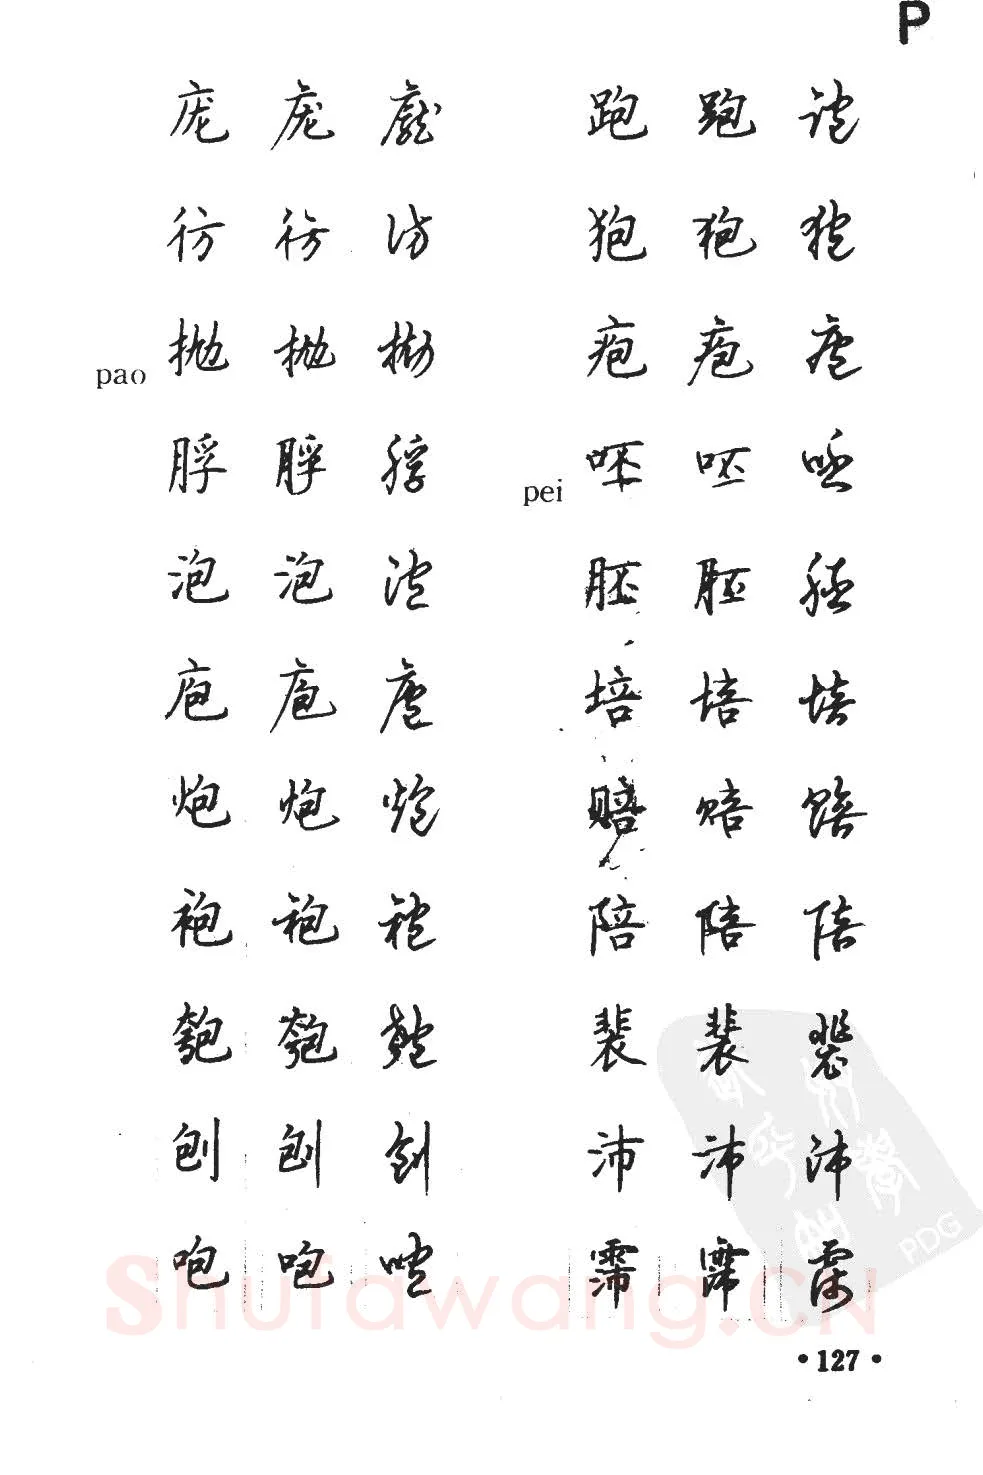 P
庞 庞 龐
彷 彷 彷
pao 抛 抛 抛
脬 脬 脬
泡 泡 泡
庖 庖 庖
炮 炮 炮
袍 袍 袍
匏 匏 匏
刨 刨 刨
咆 咆 咆
跑 跑 跑
狍 狍 狍
疱 疱 疱
pei 呸 呸 呸
胚 胚 胚
培 培 培
赔 赔 赔
陪 陪 陪
裴 裴 裴
沛 沛 沛
霈 霈 霈
PDG
Shufawang.CN
•127•